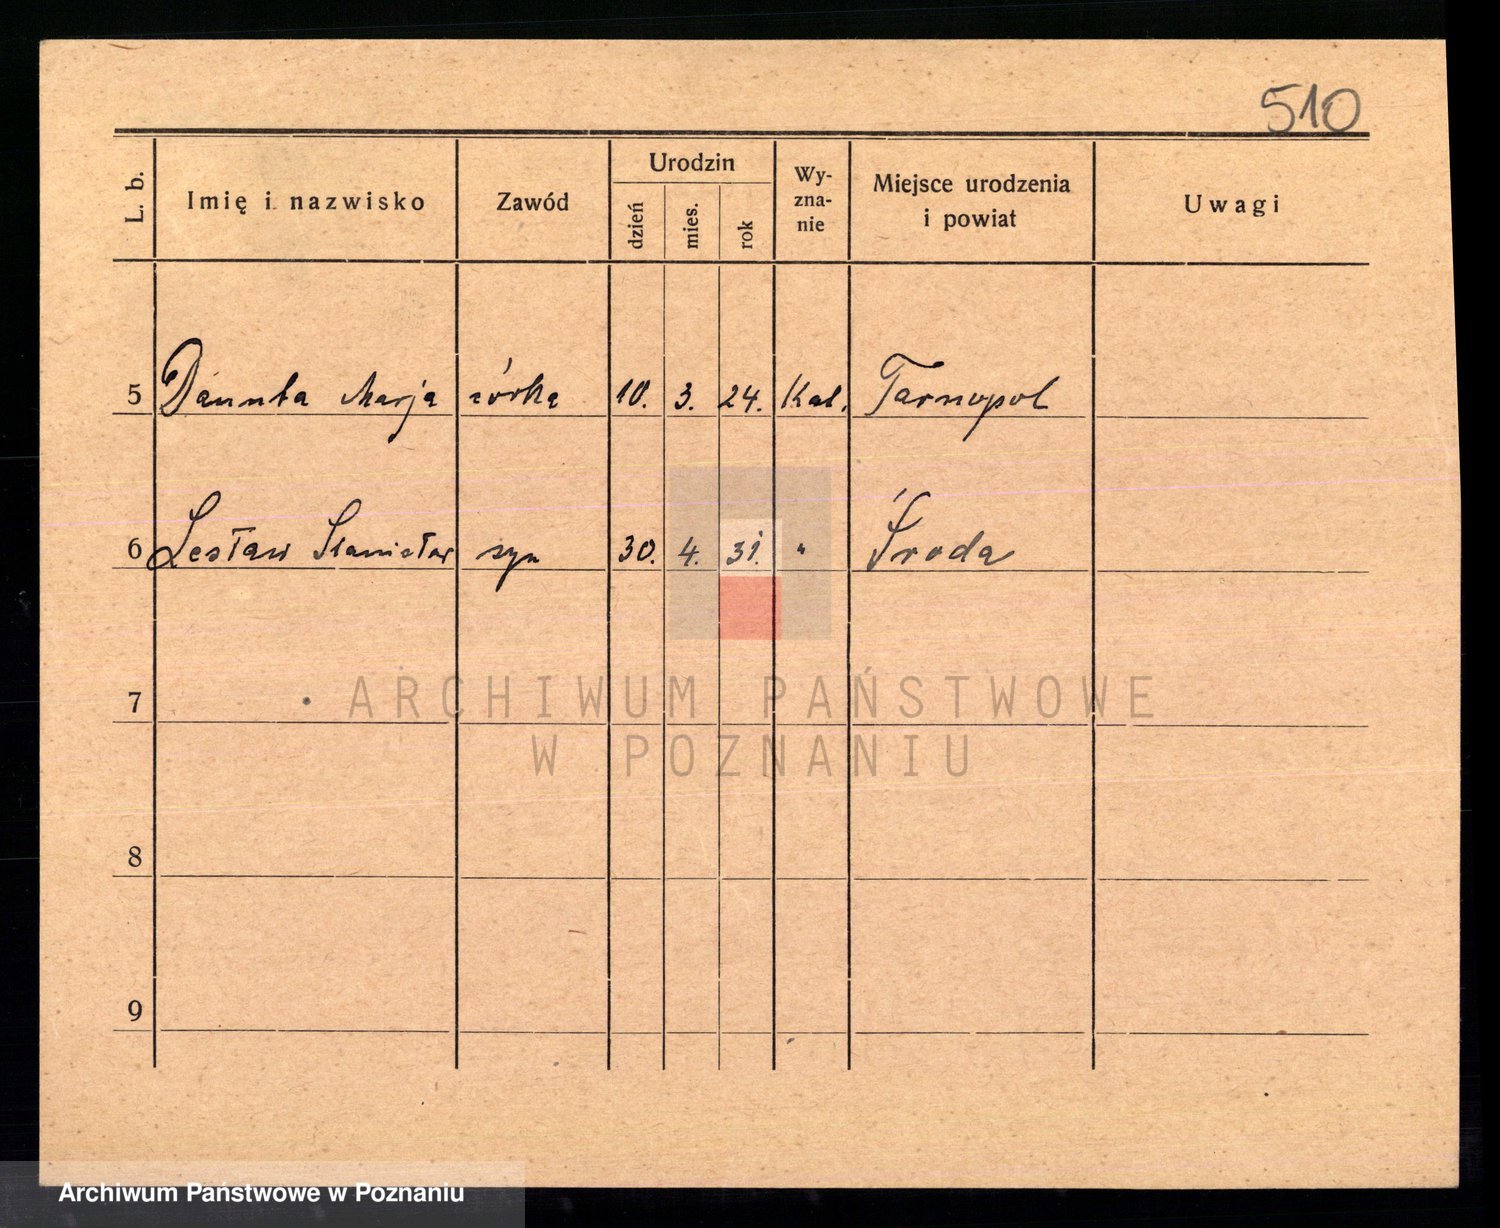 510
L. b. Imię i nazwisko Zawód Urodzin dzień mies. rok Wy-zna-nie Miejsce urodzenia i powiat Uwagi
5 Danuta Marja córka 10. 3. 24. Kat. Tarnopol
6 Lesław Stanisław syn 30. 4. 31. " Środa
7
ARCHIWUM PAŃSTWOWE
W POZNANIU
8
9
Archiwum Państwowe w Poznaniu